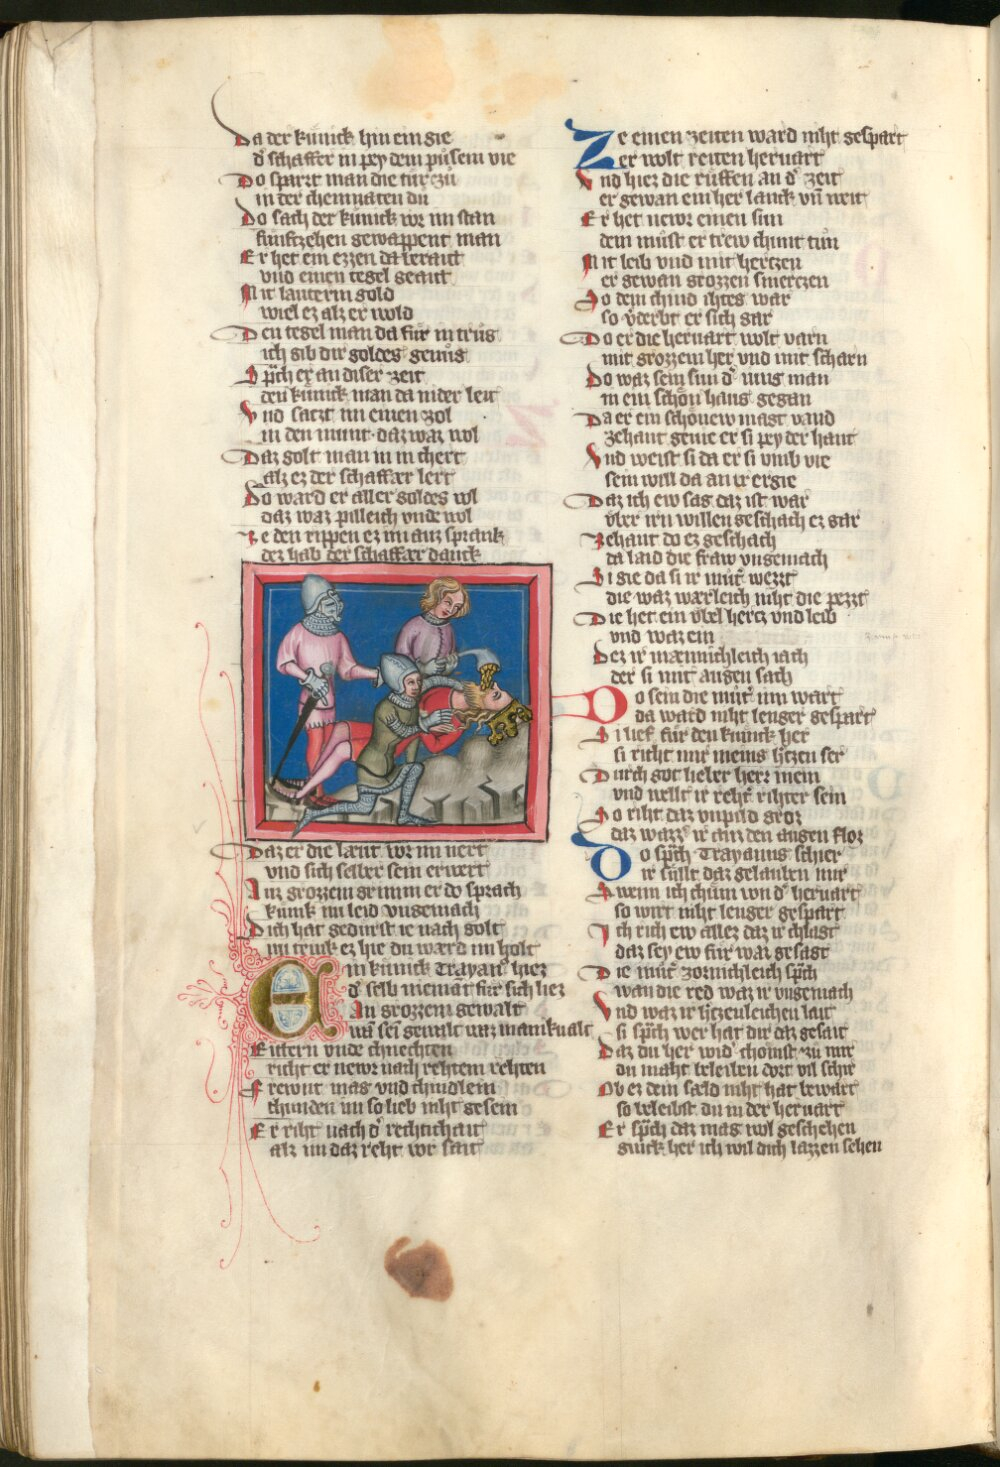 Da der kunick hin ein gie
d' schaffer in pey dem pusem vie
Do sparzt man die tur zu
in der chemnaten du
Do sach der kunick vor im stan
funftzehen gewappent man
Er het ein ezzen da beraut
vnd einen tegel geaut
Mit lauterm gold
wiel ez alz er wold
Den tegel man da fur in trug
ich gib dir goldes genug
Sprach er an diser zeit
den kunick man da nider leit
Vnd satzt im einen zol
in den munt daz waz wol
Daz golt man in in chert
alz ez der schaffær lert
Do ward er aller goldes vol
daz waz pilleich vnde wol
Ze den rippen ez im auz sprank
dez hab der schaffær danck
Daz er die læut vor im nert
vnd sich selber sein erwert
Auz grozzem grimm er do sprach
kunik nu leid vngemach
Dich hat gedurst ie nach golt
nu trink ez hie du wærd im holt
Ein kunick Trayan9 hiez
d' selb niemat fur sich liez
An grozzem gewalt
vn sei gewalt waz manikualt
Rittern vnde chnechten
richt er newr nach rehtem rehten
Frewnt mag vnd chindlein
chunden im so lieb niht gesein
Er riht nach d' rechtichait
alz im daz reht vor sait
Ze einen zeiten ward niht gespart
er wolt reiten heruart
Vnd hiez die ruffen an d' zeit
er gewan ein her lanck vn weit
Er het newr einen sun
dem must er trew chunt tun
Mit leib vnd mit hertzen
er gewan grozzen smertzen
So dem chind ihtes war
so v'derbt er sich gar
Do er die heruart wolt varn
mit grozzem her vnd mit scharn
Do waz sein sun d' iung man
in ein schon haus gegan
Da er ein schonew magt vand
zehant gevie er si pey der hant
Vnd weist si da er si vmb vie
sein will da an ir ergie
Daz ich ew sag daz ist war
vber irn willen geschach ez gar
Zehant do ez geschach
da laid die fraw vngemach
Si gie da si ir mut' wezzt
die waz wærleich niht die pezzt
Die het ein vbel hercz vnd leib
vnd waz ein
Dez ir mænnichleich iach
der si mit augen sach
Do sein die mut' inn wart
da ward niht lenger gespart
Si lief fur den kunick her
si richt mir meins h'tzen ser
Durch got lieber herr mein
vnd wellt ir reht' rihter sein
So riht daz vnpild groz
daz wazz' ir auz den augen floz
Do sp'ch Trayanus schier
ir sullt daz gelauben mir
Swenn ich chum von d' heruart
so wirt niht lenger gespart
Ich rich ew allez daz ir chlagt
daz sey ew fur war gesagt
Die mut' zornichleich sp'ch
wan die red waz ir vngemach
Vnd waz ir h'tzenleichen lait
si sp'ch wer hat dir daz gesait
Daz du her wid' chomst zu mir
du maht beleiben dort vil schir
Ob ez dein sæld niht hat bewart
so beleibst du in der heruart
Er sp'ch daz mag wol geschehen
gunck her ich wil dich lazzen sehen